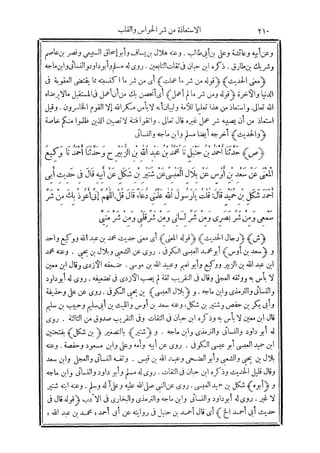 ٢١٠ الاستعاذة من شر الحواس والقلب
وعن أبيه وعائشة وعلى بن أبى طالب . وعنه هلال بن يساف وأبو إسحاق السبيعى ونصر بن عاصم
وشريك بن طارق . ذكره ابن حبان فى ثقات التابعين . روى له مسلم وأبوداود والنسائى وابن ماجه
﴿معنى الحديث﴾ ﴿قوله من شر ما عملت﴾ أى من شر ما اكتسبته مما يقتضى العقوبة فى
الدنيا والآخرة ﴿وقوله ومن شر ما لم أعمل﴾ أى أتحصن بك من أن أعمل فى المستقبل مالا يرضاه
الله تعالى. واستعاذ من هذا تعليما للأمة ولبيان أنه لا يأمن مكر الله إلا القوم الخاسرون . وقيل
استعاذ من أن يصيبه شر عمل غيره قال تعالى . واتقوا فتنة لا تصيبن الذين ظلموا منكم خاصة
﴿والحديث﴾ أخرجه أيضا مسلم وابن ماجه والنسائى
﴿ص﴾ حَدَّثَنَا أَحْمَدُ بْنُ حَنْبَلٍ نَا مُحَمَّدُ بْنُ عَبْدِ اللهِ بْنِ الزُّبَيْرِ ح وَحَدَّثَنَا أَحْمَدُ نَا وَكِيعٌ
الْمَعْنَى عَنْ سَعْدِ بْنِ أَوْسٍ عَنْ بِلَالٍ الْعَبْسِىِّ عَنْ شُتَيْرِ بْنِ شَكَلٍ عَنْ أَبِيهِ قَالَ فِى حَدِيثِ أَبِى
أَحْمَدَ شَكَلِ بْنِ حُمَيْدٍ قَالَ: قُلْتُ يَارَسُولَ اللهِ عَلِّمْنِى دُعَاءً قَالَ قُلْ اللَّهُمَّ إِنِّى أَعُوذُ بِكَ مِنْ شَرِّ
سَمْعِى وَمِنْ شَرِّ بَصَرِى وَمِنْ شَرِّ لِسَانِى وَمِنْ شَرِّ قَلْبِى وَمِنْ شَرِّ مَنِيِّى
﴿ش﴾ ﴿رجال الحديث﴾ ﴿قوله المعنى﴾ أى معنى حديث محمد بن عبد الله ووكيع واحد
و ﴿سعد بن أوس﴾ أبو محمد العبسى الكوفى . روى عن الشعبى وبلال بن يحيى . وعنه محمد
ابن عبد الله بن الزبير ووكيع وأبو نعيم وعبيد الله بن موسى . ضعفه الأزدى وقال ابن معين
لا بأس به ووثقه العجلى وقال فى التقريب ثقة لم يصب الأزدى فى تضعيفه . روى له أبوداود
والنسائى والترمذى وابن ماجه . و ﴿بلال العبسى﴾ بن يحيى الكوفى . روى عن على وحذيفة
وأبى بكر بن حفص وشتير بن شكل . وعنه سعد بن أوس والليث بن أبى سليم وحبيب بن سليم
قال ابن معين لا بأس به وذكره ابن حبان فى الثقات وفى التقريب صدوق من الثالثة . روى
له أبو داود والنسائى والترمذى وابن ماجه . و ﴿شتير﴾ بالتصغير ﴿بن شكل﴾ بفتحتين
ابن حميد العبسى أبو عيسى الكوفى . روى عن أبيه وأمه وعلى وابن مسعود وحفصة . وعنه
بلال بن يحيى والشعبى وأبو الضحى وعبد الله بن قيس . وثقه النسائى والعجلى وابن سعد
وقال قليل الحديث وذكره ابن حبان فى الثقات . روى له مسلم وأبو داود والنسائى وابن ماجه
و ﴿أبوه﴾ شكل بن حميد العبسى . روى عن النبى صلى الله عليه وعلى آله وسلم . وعنه ابنه شتير
لا غير . روى له أبوداود والنسائى وابن ماجه والترمذى والبخارى فى الأدب ﴿قوله قال فى
حديث أبى أحمد الخ﴾ أى قال أحمد بن حنبل فى روايته عن أبى أحمد ، محمد بن عبد الله ،